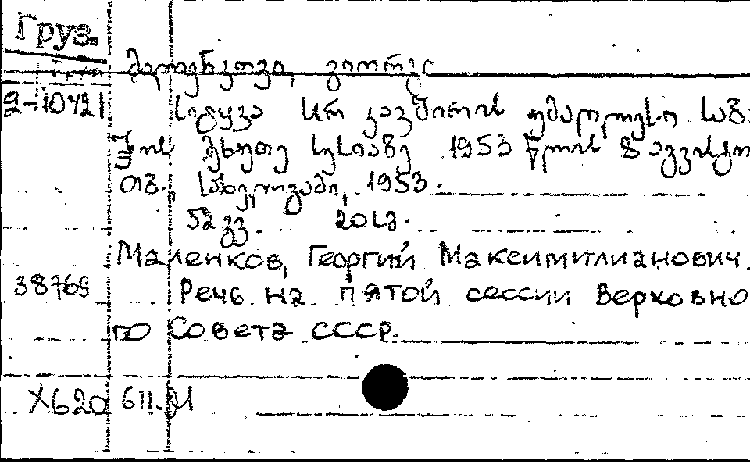 Груз.
მალენკოვი, გიორგი
2-10421 სიტყვა სსრ კავშირის უმაღლესი საბ
ჭოს მეხუთე სესიაზე 1953 წლის 8 აგვისტო
თბ., სახელგამი, 1953.
52 გვ. 20 სმ.
Маленков, Георгий Максимилианович.
38769 Речь на пятой сессии Верховно
го Совета СССР.
X620 611.21